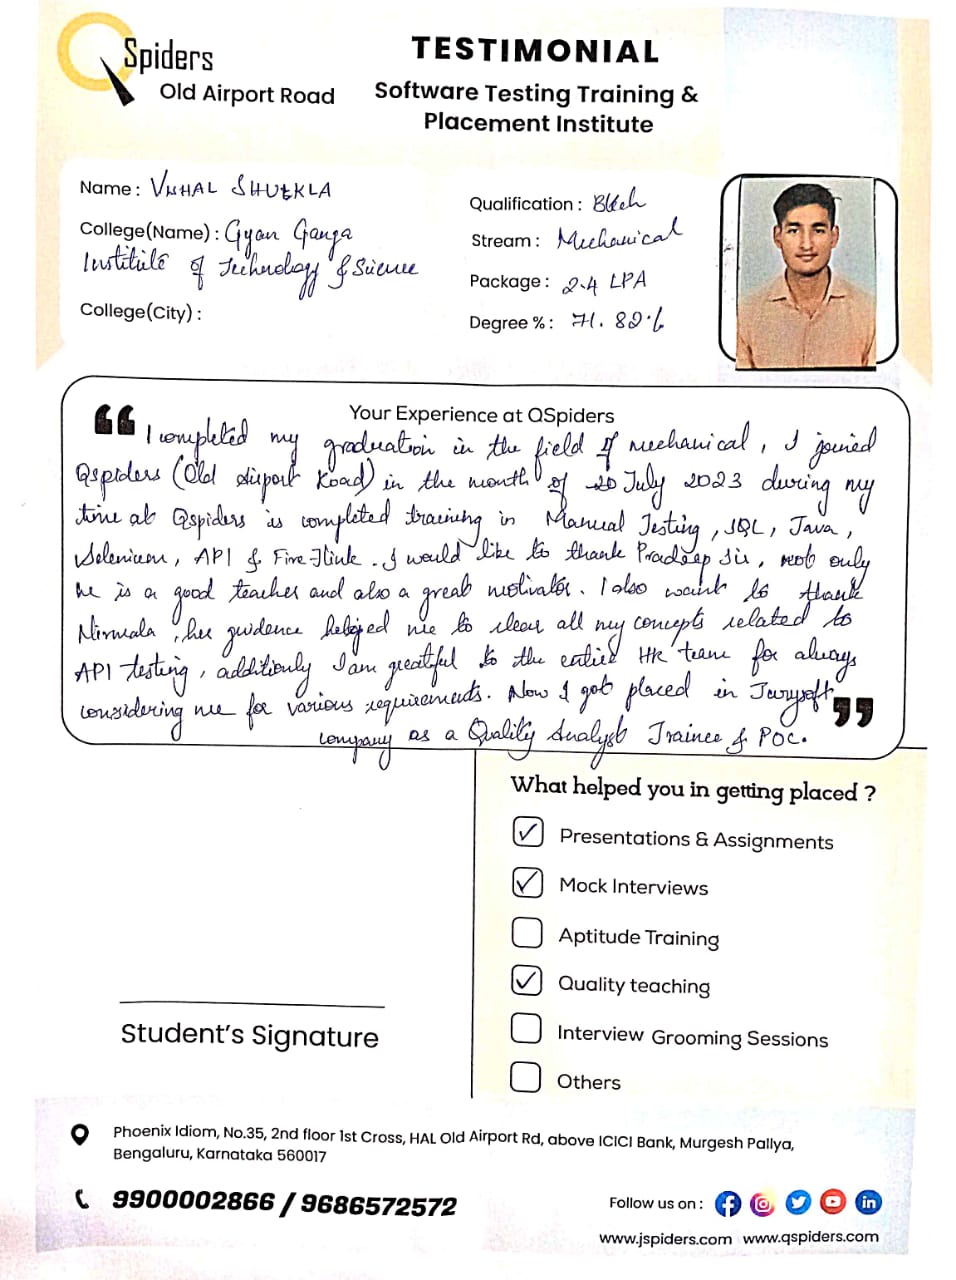 QSpiders
Old Airport Road
TESTIMONIAL
Software Testing Training &
Placement Institute
Name : VISHAL SHUKLA
College(Name) : Gyan Ganga
Institute of Technology & Science
College(City) :
Qualification : Btech
Stream : Mechanical
Package : 2.4 LPA
Degree % : 71.82%
Your Experience at QSpiders
“ I completed my graduation in the field of mechanical, I joined
Qspiders (Old Airport Road) in the month of 20 July 2023 during my
time at Qspiders is completed training in Manual Testing, SQL, Java,
Selenium, API & Fire Flink. I would like to thank Pradeep Sir, not only
he is a good teacher and also a great motivator. I also want to thank
Nirmala, her guidence helped me to clear all my concepts related to
API testing, additionly I am greatful to the entire HR team for always
considering me for various requirements. Now I got placed in ”
company as a Quality Analyst Trainee & POC.
What helped you in getting placed ?
✓ Presentations & Assignments
✓ Mock Interviews
Aptitude Training
✓ Quality teaching
Interview Grooming Sessions
Others
Student's Signature
Phoenix Idiom, No.35, 2nd floor 1st Cross, HAL Old Airport Rd, above ICICI Bank, Murgesh Pallya,
Bengaluru, Karnataka 560017
9900002866 / 9686572572
Follow us on :
www.jspiders.com www.qspiders.com